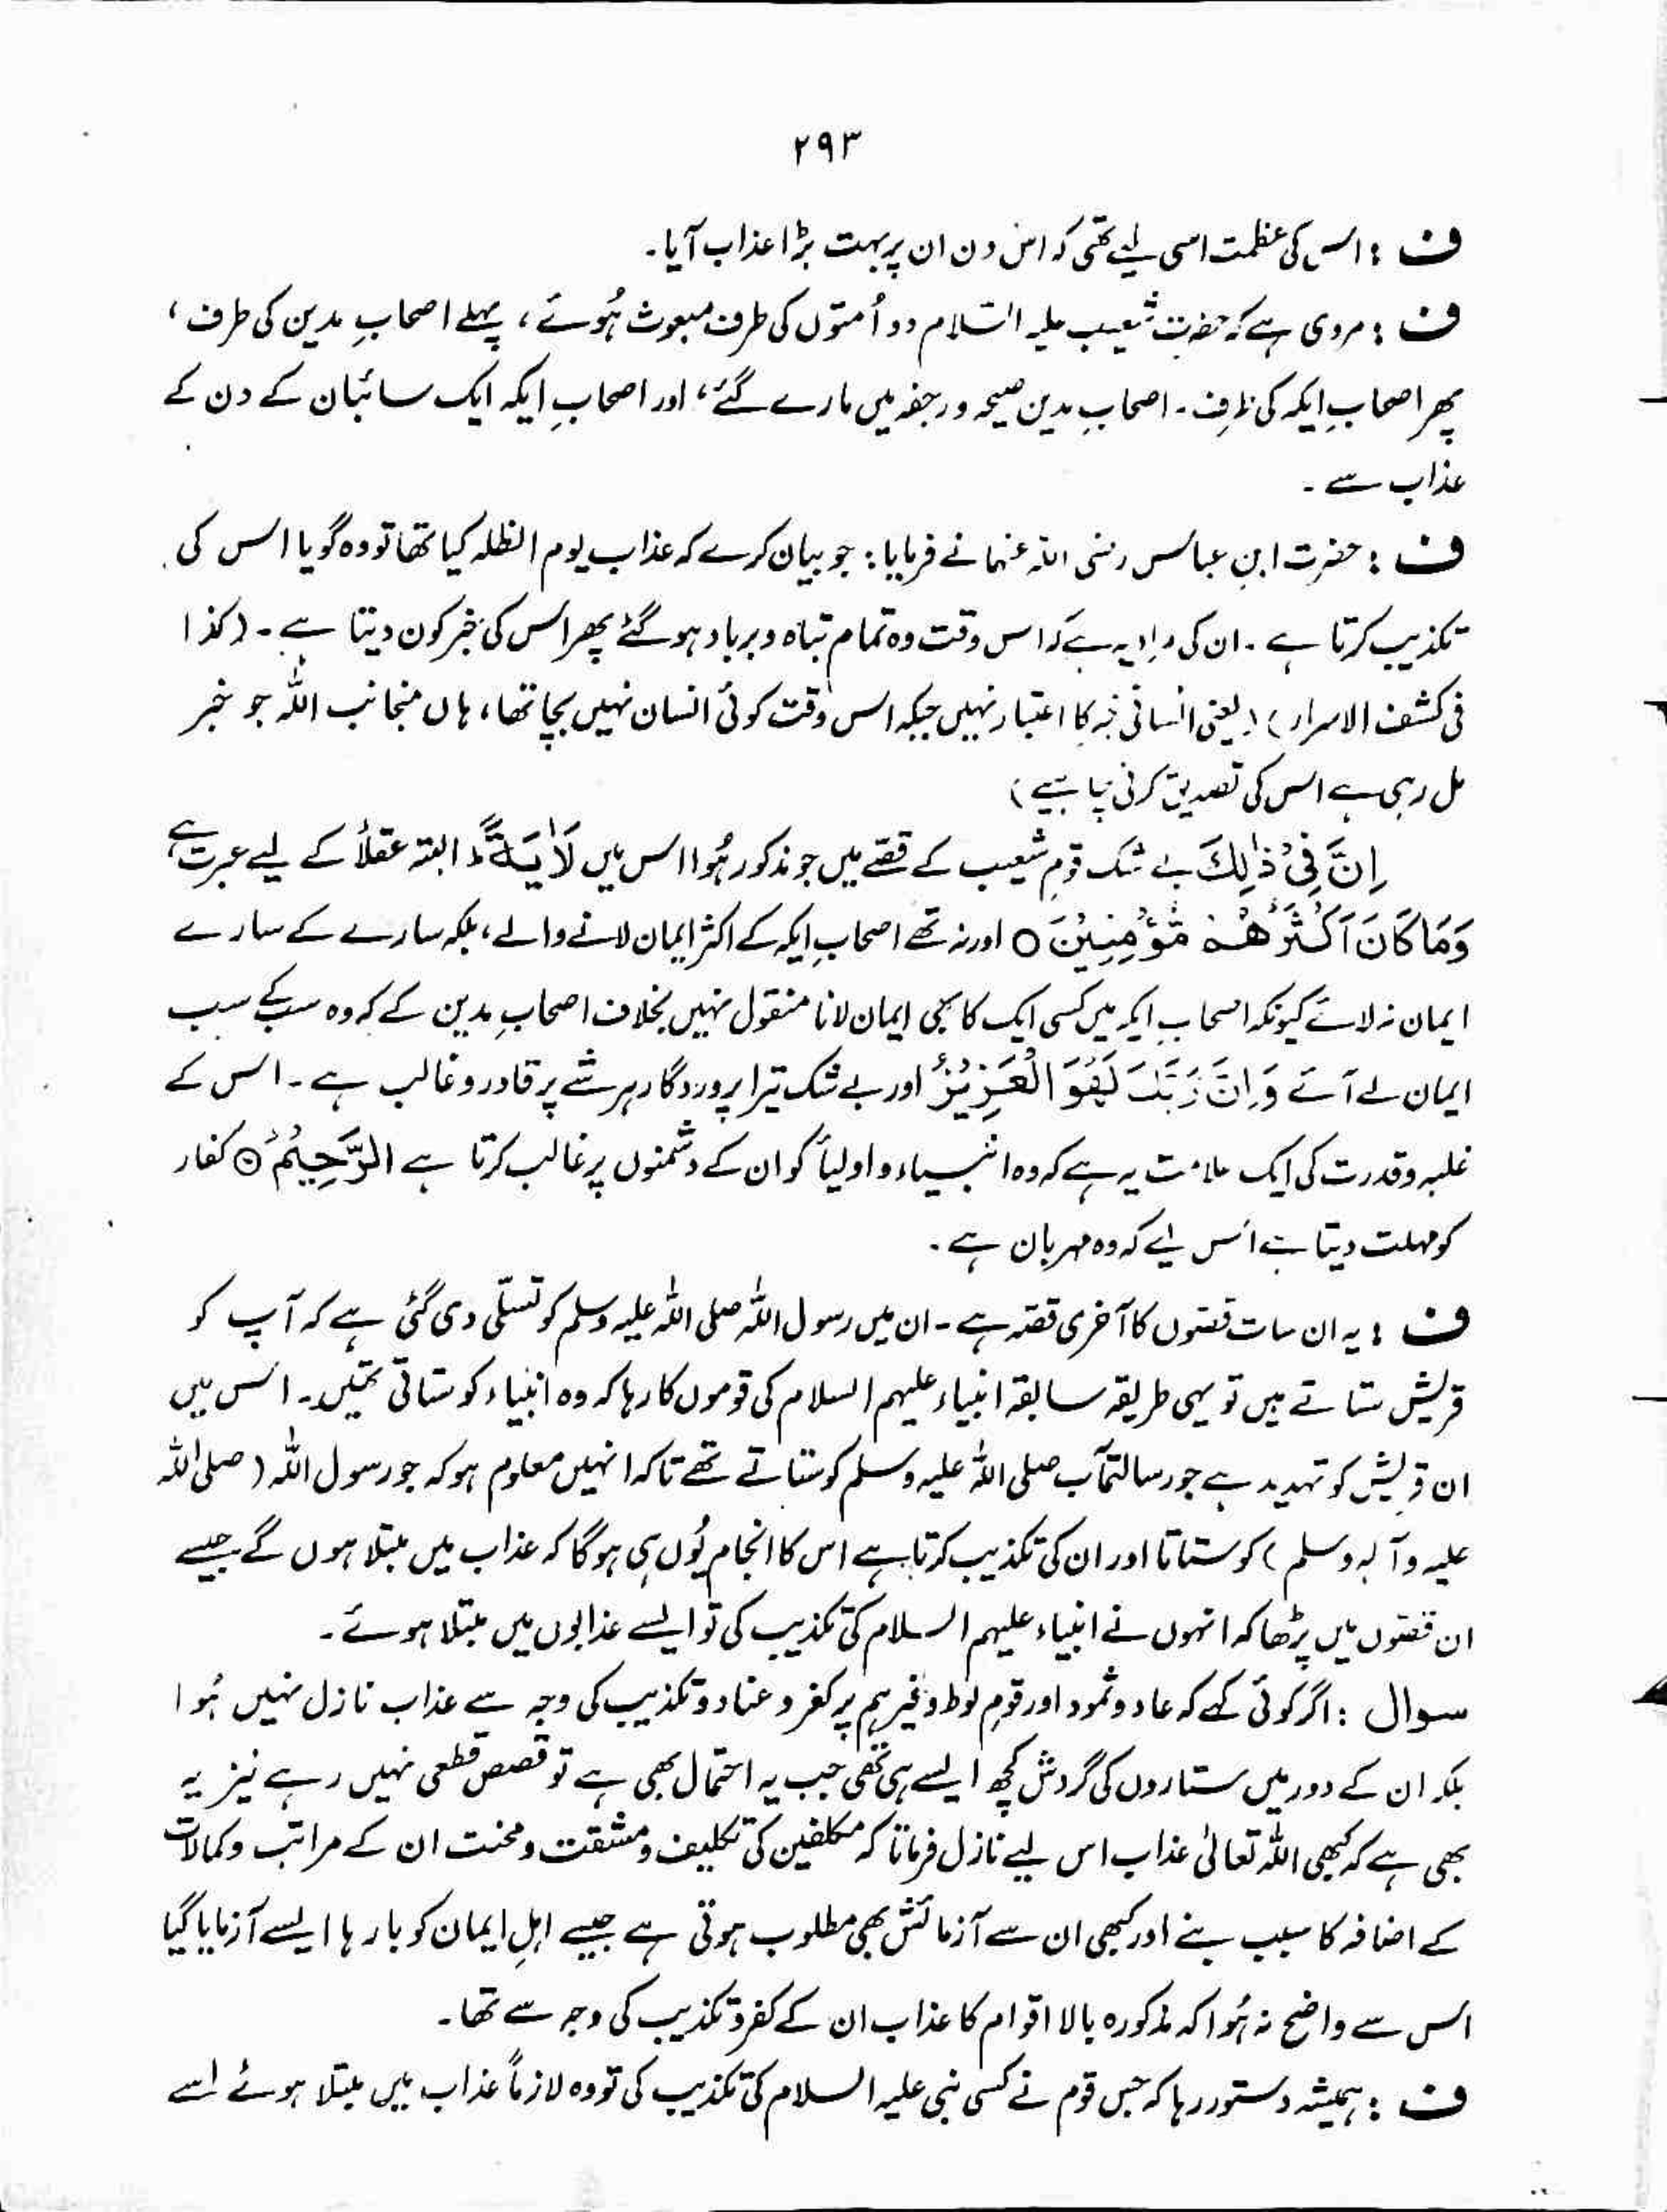 ۲۹۳
ف : اس کی عظمت اسی لیے تھی کہ اس دن ان پر بہت بڑا عذاب آیا۔
ف : مروی ہے کہ حضرت شعیب علیہ السّلام دو اُمتوں کی طرف مبعوث ہُوئے ، پہلے اصحابِ مدین کی طرف ،
پھر اصحابِ ایکہ کی طرف ۔ اصحابِ مدین صیحہ و رجفہ میں مارے گئے ، اور اصحابِ ایکہ ایک سائبان کے دن کے
عذاب سے ۔
ف : حضرت ابنِ عباس رضی اللہ عنہما نے فرمایا : جو بیان کرے کہ عذاب یوم الظلہ کیا تھا تو وہ گویا اس کی
تکذیب کرتا ہے ۔ ان کی مراد یہ ہے کہ اس وقت وہ تمام تباہ و برباد ہو گئے پھر اس کی خبر کون دیتا ہے ۔ ( کذا
فی کشف الاسرار ) ( یعنی انسانی خبر کا اعتبار نہیں جبکہ اس وقت کوئی انسان نہیں بچا تھا ، ہاں منجانب اللہ جو خبر
مل رہی ہے اس کی تصدیق کرنی چاہیے )
اِنَّ فِیْ ذٰلِكَ بے شک قومِ شعیب کے قصّے میں جو مذکور ہُوا اس میں لَاٰیَةً ؕ البتہ عقلأ کے لیے عبرت ہے ،
وَمَا كَانَ اَكْثَرُهُمْ مُّؤْمِنِیْنَ ○ اور نہ تھے اصحابِ ایکہ کے اکثر ایمان لانے والے ، بلکہ سارے کے سارے
ایمان نہ لائے کیونکہ اصحابِ ایکہ میں کسی ایک کا بھی ایمان لانا منقول نہیں بخلاف اصحابِ مدین کے کہ وہ سب کے سب
ایمان لے آئے وَاِنَّ رَبَّكَ لَهُوَ الْعَزِیْزُ اور بے شک تیرا پروردگار ہر شے پر قادر و غالب ہے ۔ اس کے
غلبہ و قدرت کی ایک علامت یہ ہے کہ وہ انبیاء و اولیأ کو ان کے دشمنوں پر غالب کرتا ہے الرَّحِیْمُ ○ کفار
کو مہلت دیتا ہے اس لیے کہ وہ مہربان ہے ۔
ف : یہ ان سات قصّوں کا آخری قصّہ ہے ۔ ان میں رسول اللہ صلی اللہ علیہ وسلم کو تسلّی دی گئی ہے کہ آپ کو
قریش ستاتے ہیں تو یہی طریقہ سابقہ انبیاء علیہم السلام کی قوموں کا رہا کہ وہ انبیاء کو ستاتی تھیں ۔ اس میں
ان قریش کو تہدید ہے جو رسالتمآب صلی اللہ علیہ وسلم کو ستاتے تھے تاکہ انہیں معلوم ہو کہ جو رسول اللہ ( صلی اللہ
علیہ وآلہ وسلم ) کو ستاتا اور ان کی تکذیب کرتا ہے اس کا انجام یُوں ہی ہوگا کہ عذاب میں مبتلا ہوں گے جیسے
ان قصّوں میں پڑھا کہ انہوں نے انبیاء علیہم السلام کی تکذیب کی تو ایسے عذابوں میں مبتلا ہوئے ۔
سوال : اگر کوئی کہے کہ عاد و ثمود اور قومِ لوط وغیرہم پر کفر و عناد و تکذیب کی وجہ سے عذاب نازل نہیں ہُوا
بلکہ ان کے دور میں ستاروں کی گردش کچھ ایسے ہی تھی جب یہ احتمال بھی ہے تو قصص قطعی نہیں رہے نیز یہ
بھی ہے کہ کبھی اللہ تعالیٰ عذاب اس لیے نازل فرماتا کہ مکلفین کی تکلیف و مشقت و محنت ان کے مراتب و کمالات
کے اضافہ کا سبب بنے اور کبھی ان سے آزمائش بھی مطلوب ہوتی ہے جیسے اہلِ ایمان کو بارہا ایسے آزمایا گیا
اس سے واضح نہ ہُوا کہ مذکورہ بالا اقوام کا عذاب ان کے کفر و تکذیب کی وجہ سے تھا ۔
ف : ہمیشہ دستور رہا کہ جس قوم نے کسی نبی علیہ السلام کی تکذیب کی تو وہ لازماً عذاب میں مبتلا ہوئے اسے